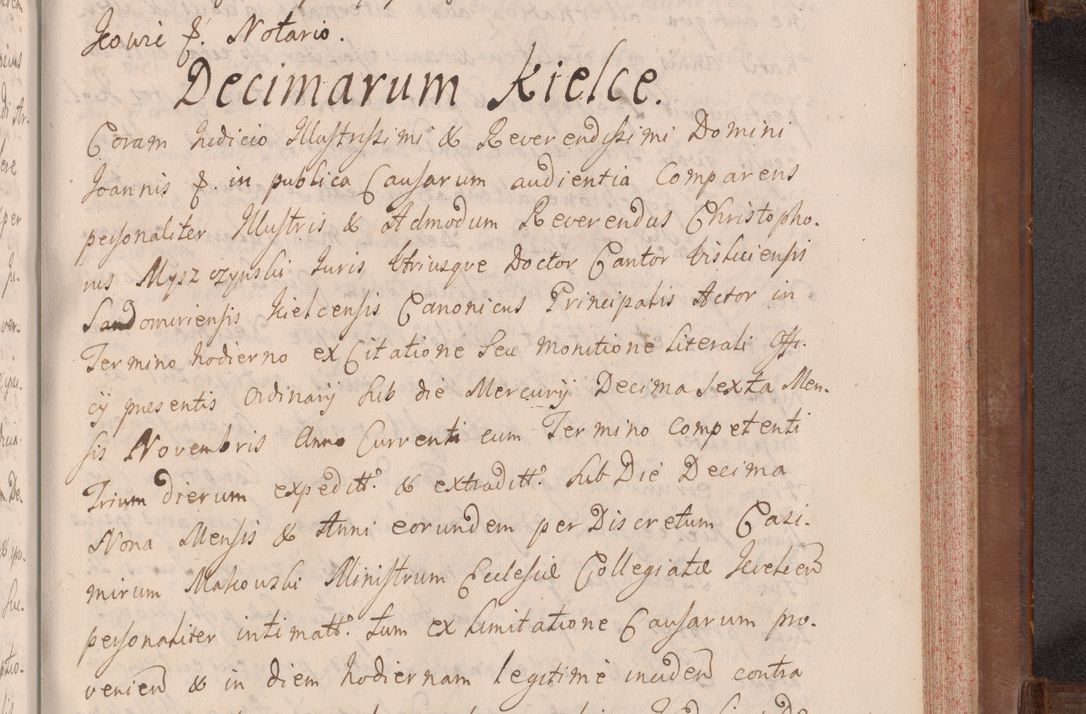 Jeowi &. Notario.
Decimarum Kielce.
Coram Judicio Illustrissimi & Reverendissimi Domini
Joannis &. in publica Causarum audientia Comparens
personaliter Illustris & Admodum Reverendus Christopho-
rus Myszczynski Juris Utriusque Doctor Cantor Visliciensis
Sandomiriensis Kielcensis Canonicus Principalis Actor in
Termino hodierno ex Citatione Seu Monitione Literali Offi-
cij presentis Ordinarij Sub die Mercurij Decima Sexta Men-
sis Novembris Anno Currenti cum Termino competenti
Trium dierum expeditt. & extraditt. Sub Die Decima
Nona Mensis & Anni eorundem per Discretum Casi-
mirum Makowski Ministrum Ecclesiæ Collegiatæ
personaliter intimatt. tum ex Limitatione Causarum pro-
venien & in diem hodiernam legitime inciden contra